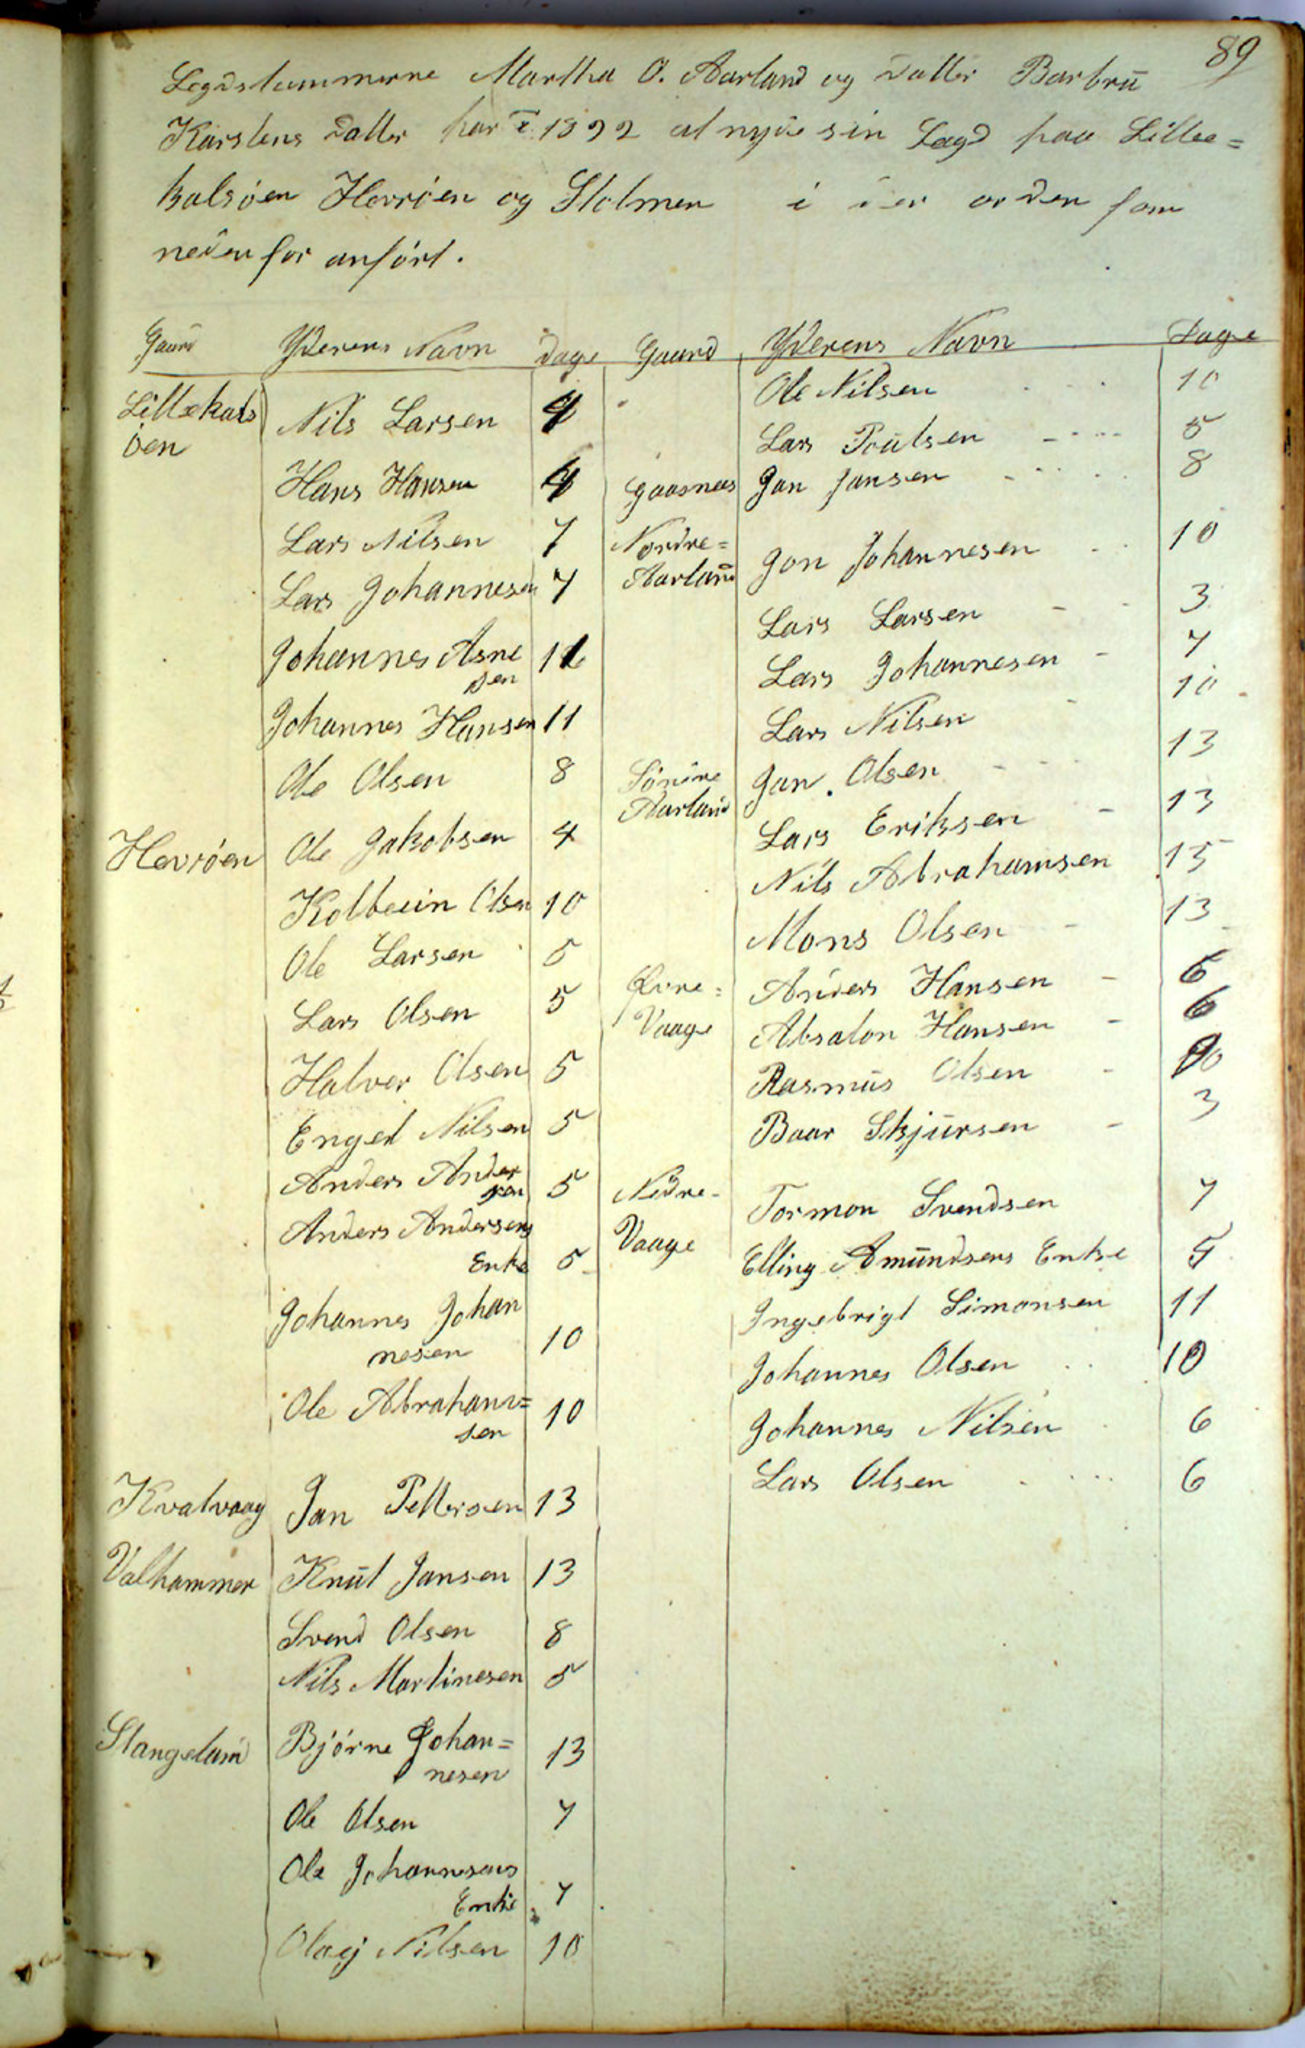 89
Legdslemmerne Martha O. Aarland og Datter Barbru
Karstens Datter har i 1892 at nyde sin Lægd paa Lille=
kalsøen Hevrøen og Stolmen i den orden som
nedenfor anført.
Gaard Yderens Navn Dage
Lillekals Nils Larsen 4
øen
Hans Hansen 4
Lars Nilsen 7
Lars Johannesen 7
Johannes Asne 11
sen
Johannes Hansen 11
Ole Olsen 8
Hevrøen Ole Jakobsen 4
Kolbein Olsen 10
Ole Larsen 5
Lars Olsen 5
Halvor Olsen 5
Engel Nilsen 5
Anders Ander
sen 5
Anders Andersens
Enke 5
Johannes Johan
nesen 10
Ole Abraham=
sen 10
Kvalvaag Jan Pettersen 13
Valhammer Knut Jansen 13
Svend Olsen 8
Nils Martinesen 5
Stangeland Bjørne Johan=
nesen 13
Ole Olsen 7
Ole Johannesens
Enke 7
Nilsen 10
Gaard Yderens Navn Dage
Ole Nilsen 10
Lars Poulsen 5
Gaasnæs Jan Jansen 8
Nordre= Jon Johannesen 10
Aarland
Lars Larsen 3
Lars Johannesen 7
Lars Nilsen 10
Søndre Jan Olsen 13
Aarland
Lars Eriksen 13
Nils Abrahamsen 15
Mons Olsen 13
Øvre= Anders Hansen 6
Vaage Absalon Hansen 6
Rasmus Olsen 10
Baar Skjursen 3
Nedre- Tormon Svendsen 7
Vaage Elling Amundsens Enke 5
Ingebrigt Simonsen 11
Johannes Olsen 10
Johannes Nilsen 6
Lars Olsen 6